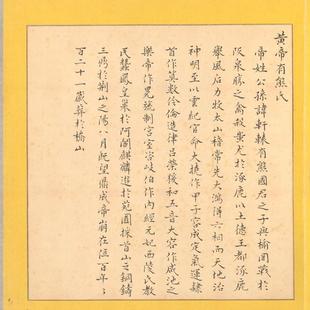 黃帝有熊氏
帝姓公孫諱軒轅有熊國君之子與榆罔戰於
阪泉勝之禽殺蚩尤於涿鹿以土德王都涿鹿
舉風后力牧太山稽常先大鴻得六相而天地治
神明至以雲紀官命大撓作甲子容成定氣運隸
首作算數伶倫造律呂榮猨和五音大容作咸池之
樂帝作冕旒制宮室咨岐伯作內經元妃西陵氏教
民蠶鳳皇巢於阿閣麒麟遊於苑囿採首山之銅鑄
三鼎於荊山之陽八月既望鼎成帝崩在位百年年
百二十一歲葬於橋山